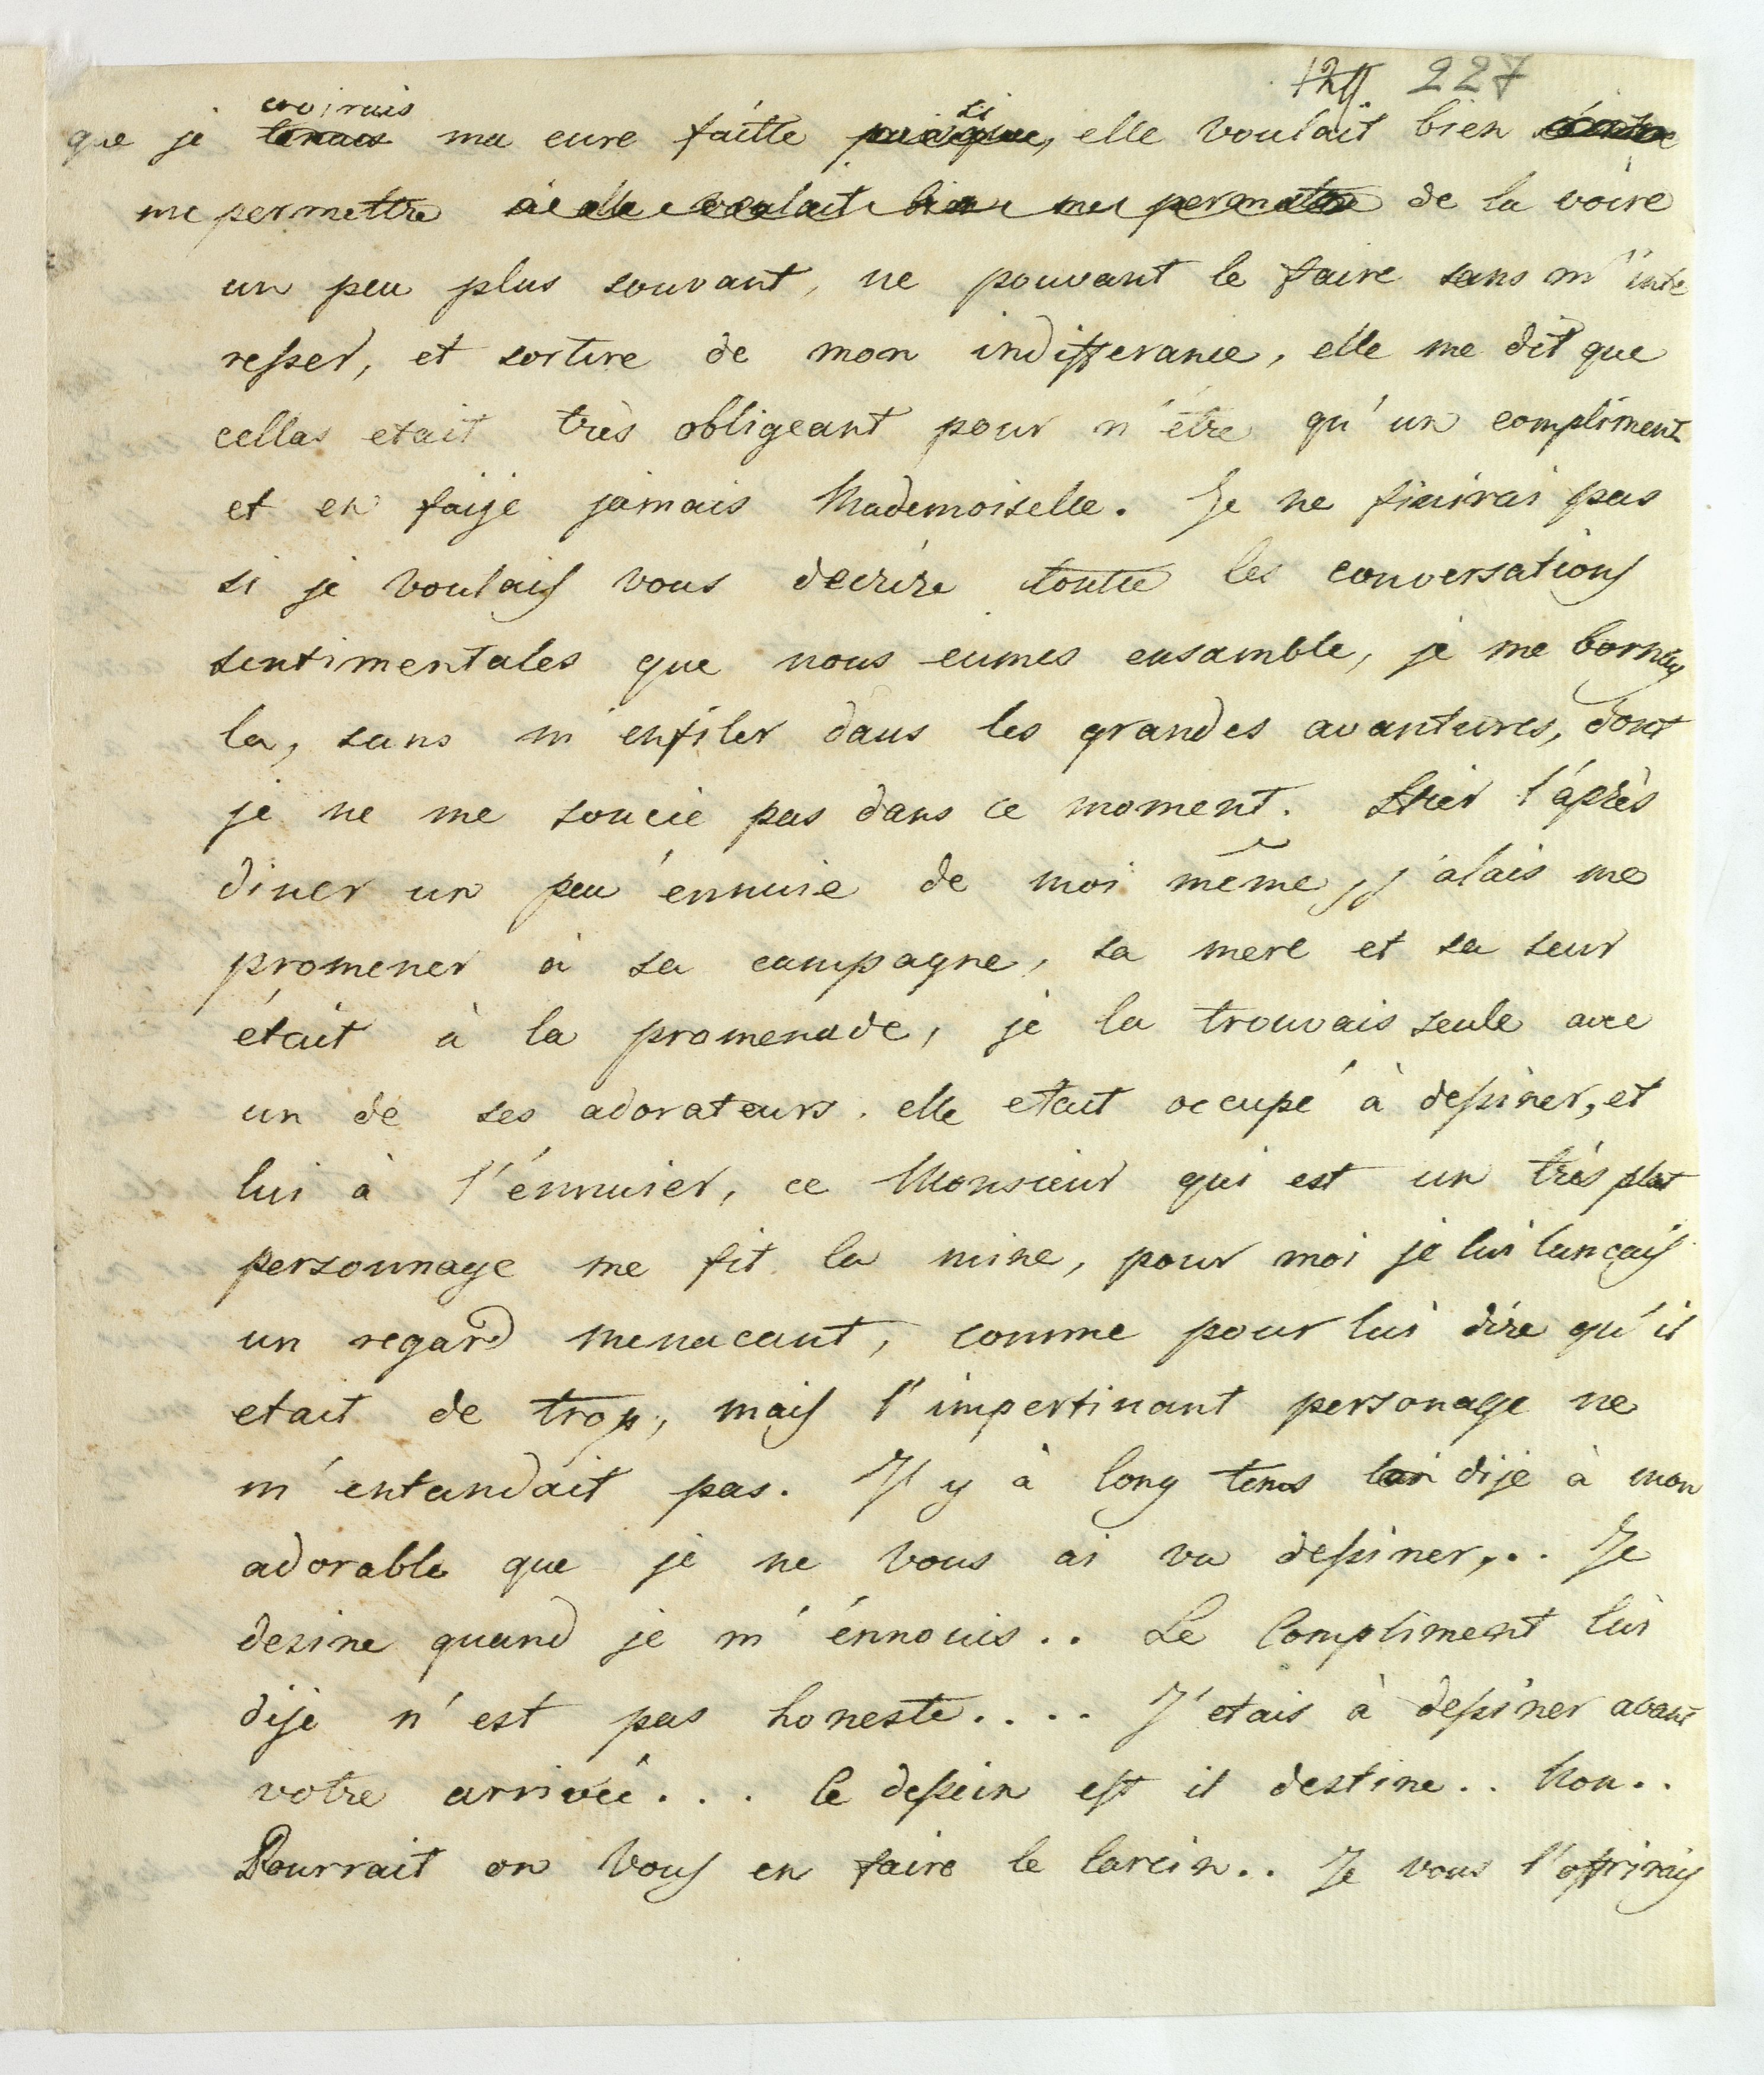 227
croirais si
que je tenais ma cure faitte puisque, elle voulait bien
me permettre si elle voulait bien me permettre de la voire
un peu plus souvant, ne pouvant le faire sans m'inte
resser, et sortire de mon indifferance, elle me dit que
cellas etait très obligeant pour n'étre qu'un compliment
et en faije jamais Mademoiselle. Je ne finirai pas
si je voulais vous decrire toutte les conversations
sentimentales que nous eumes ensamble, je me borney
la, sans m'enfiler dans les grandes avantures, dont
je ne me soucie pas dans ce moment. Hier l'après
diner un peu ennuié de moi même, j'alais me
promener à sa campagne, sa mere et sa seur
était à la promenade, je la trouvais seule avec
un de ses adorateurs. elle etait occupé à dessiner, et
lui à l'énnuier, ce Monsieur qui est un très plat
personnage me fit la mine, pour moi je lui lançais
un regard menacant, comme pour lui dire qu'il
etait de trop, mais l'impertinant personage ne
m'entandait pas. Il y à long tems lui dije à mon
adorable que je ne vous ai vu dessiner,.. Je
desine quand je m'énnouis.. Le Compliment lui
dije n'est pas honeste.... J'etais à dessiner avant
votre arrivée... Ce dessein est il destine.. Non..
Pourrait on vous en faire le larcin.. Je vous l'offrirais